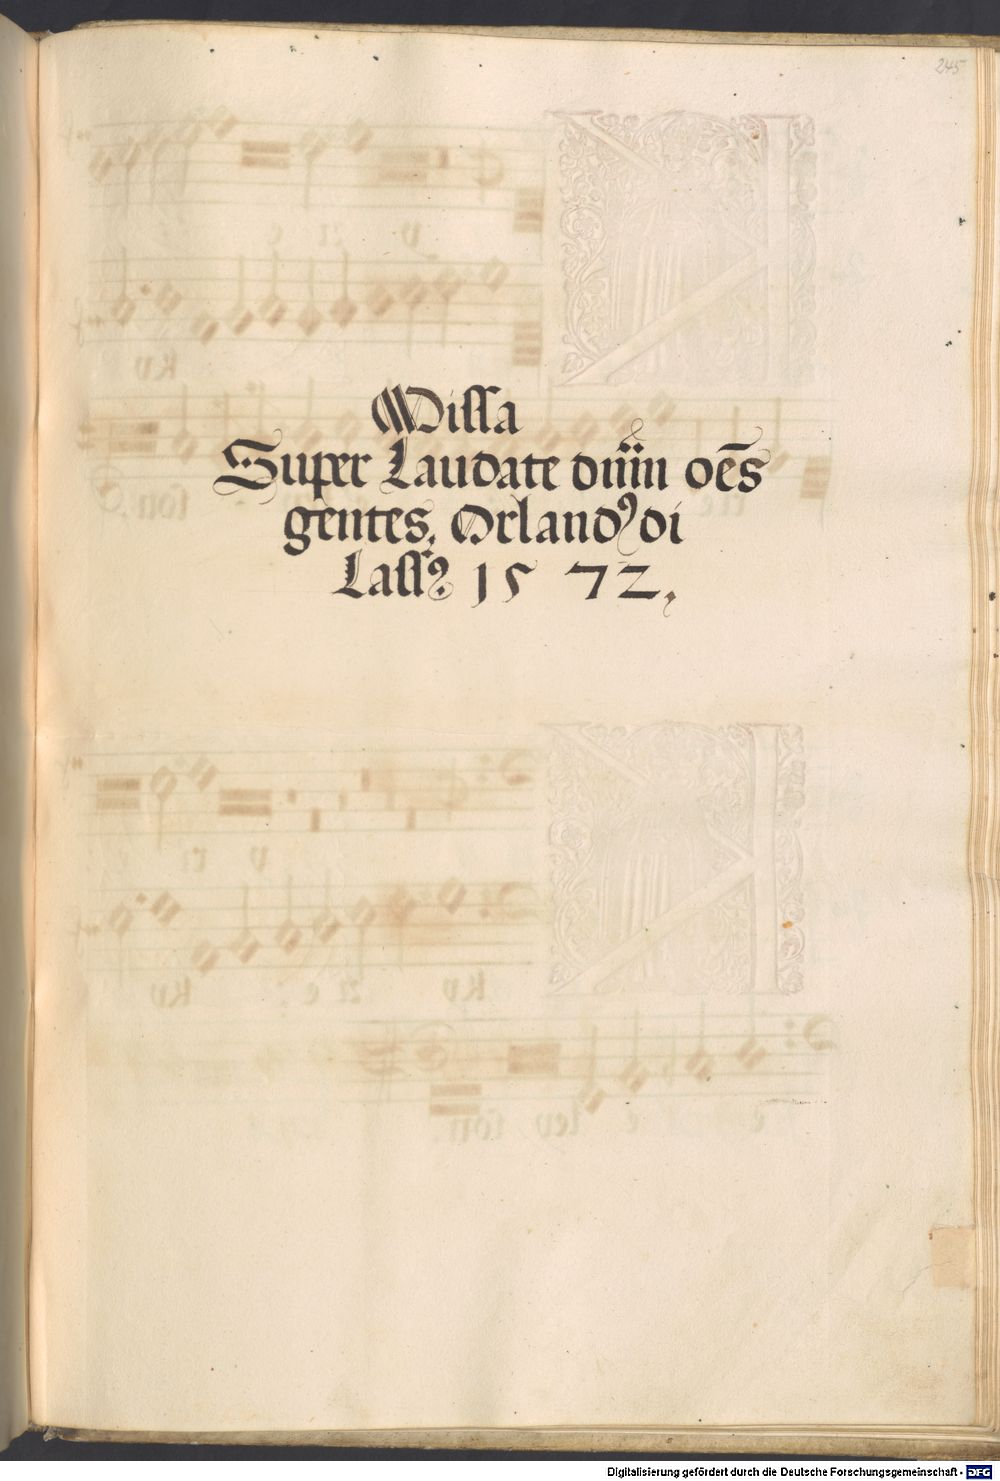 245
Missa
Super Laudate dnm̄ oēs
gentes. Orlandꝰ di
Lassꝰ. 1572.
Digitalisierung gefördert durch die Deutsche Forschungsgemeinschaft - DFG